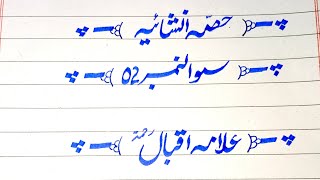 حصہ انشائیہ
سوالنمبر 02
علامہ اقبالؒ